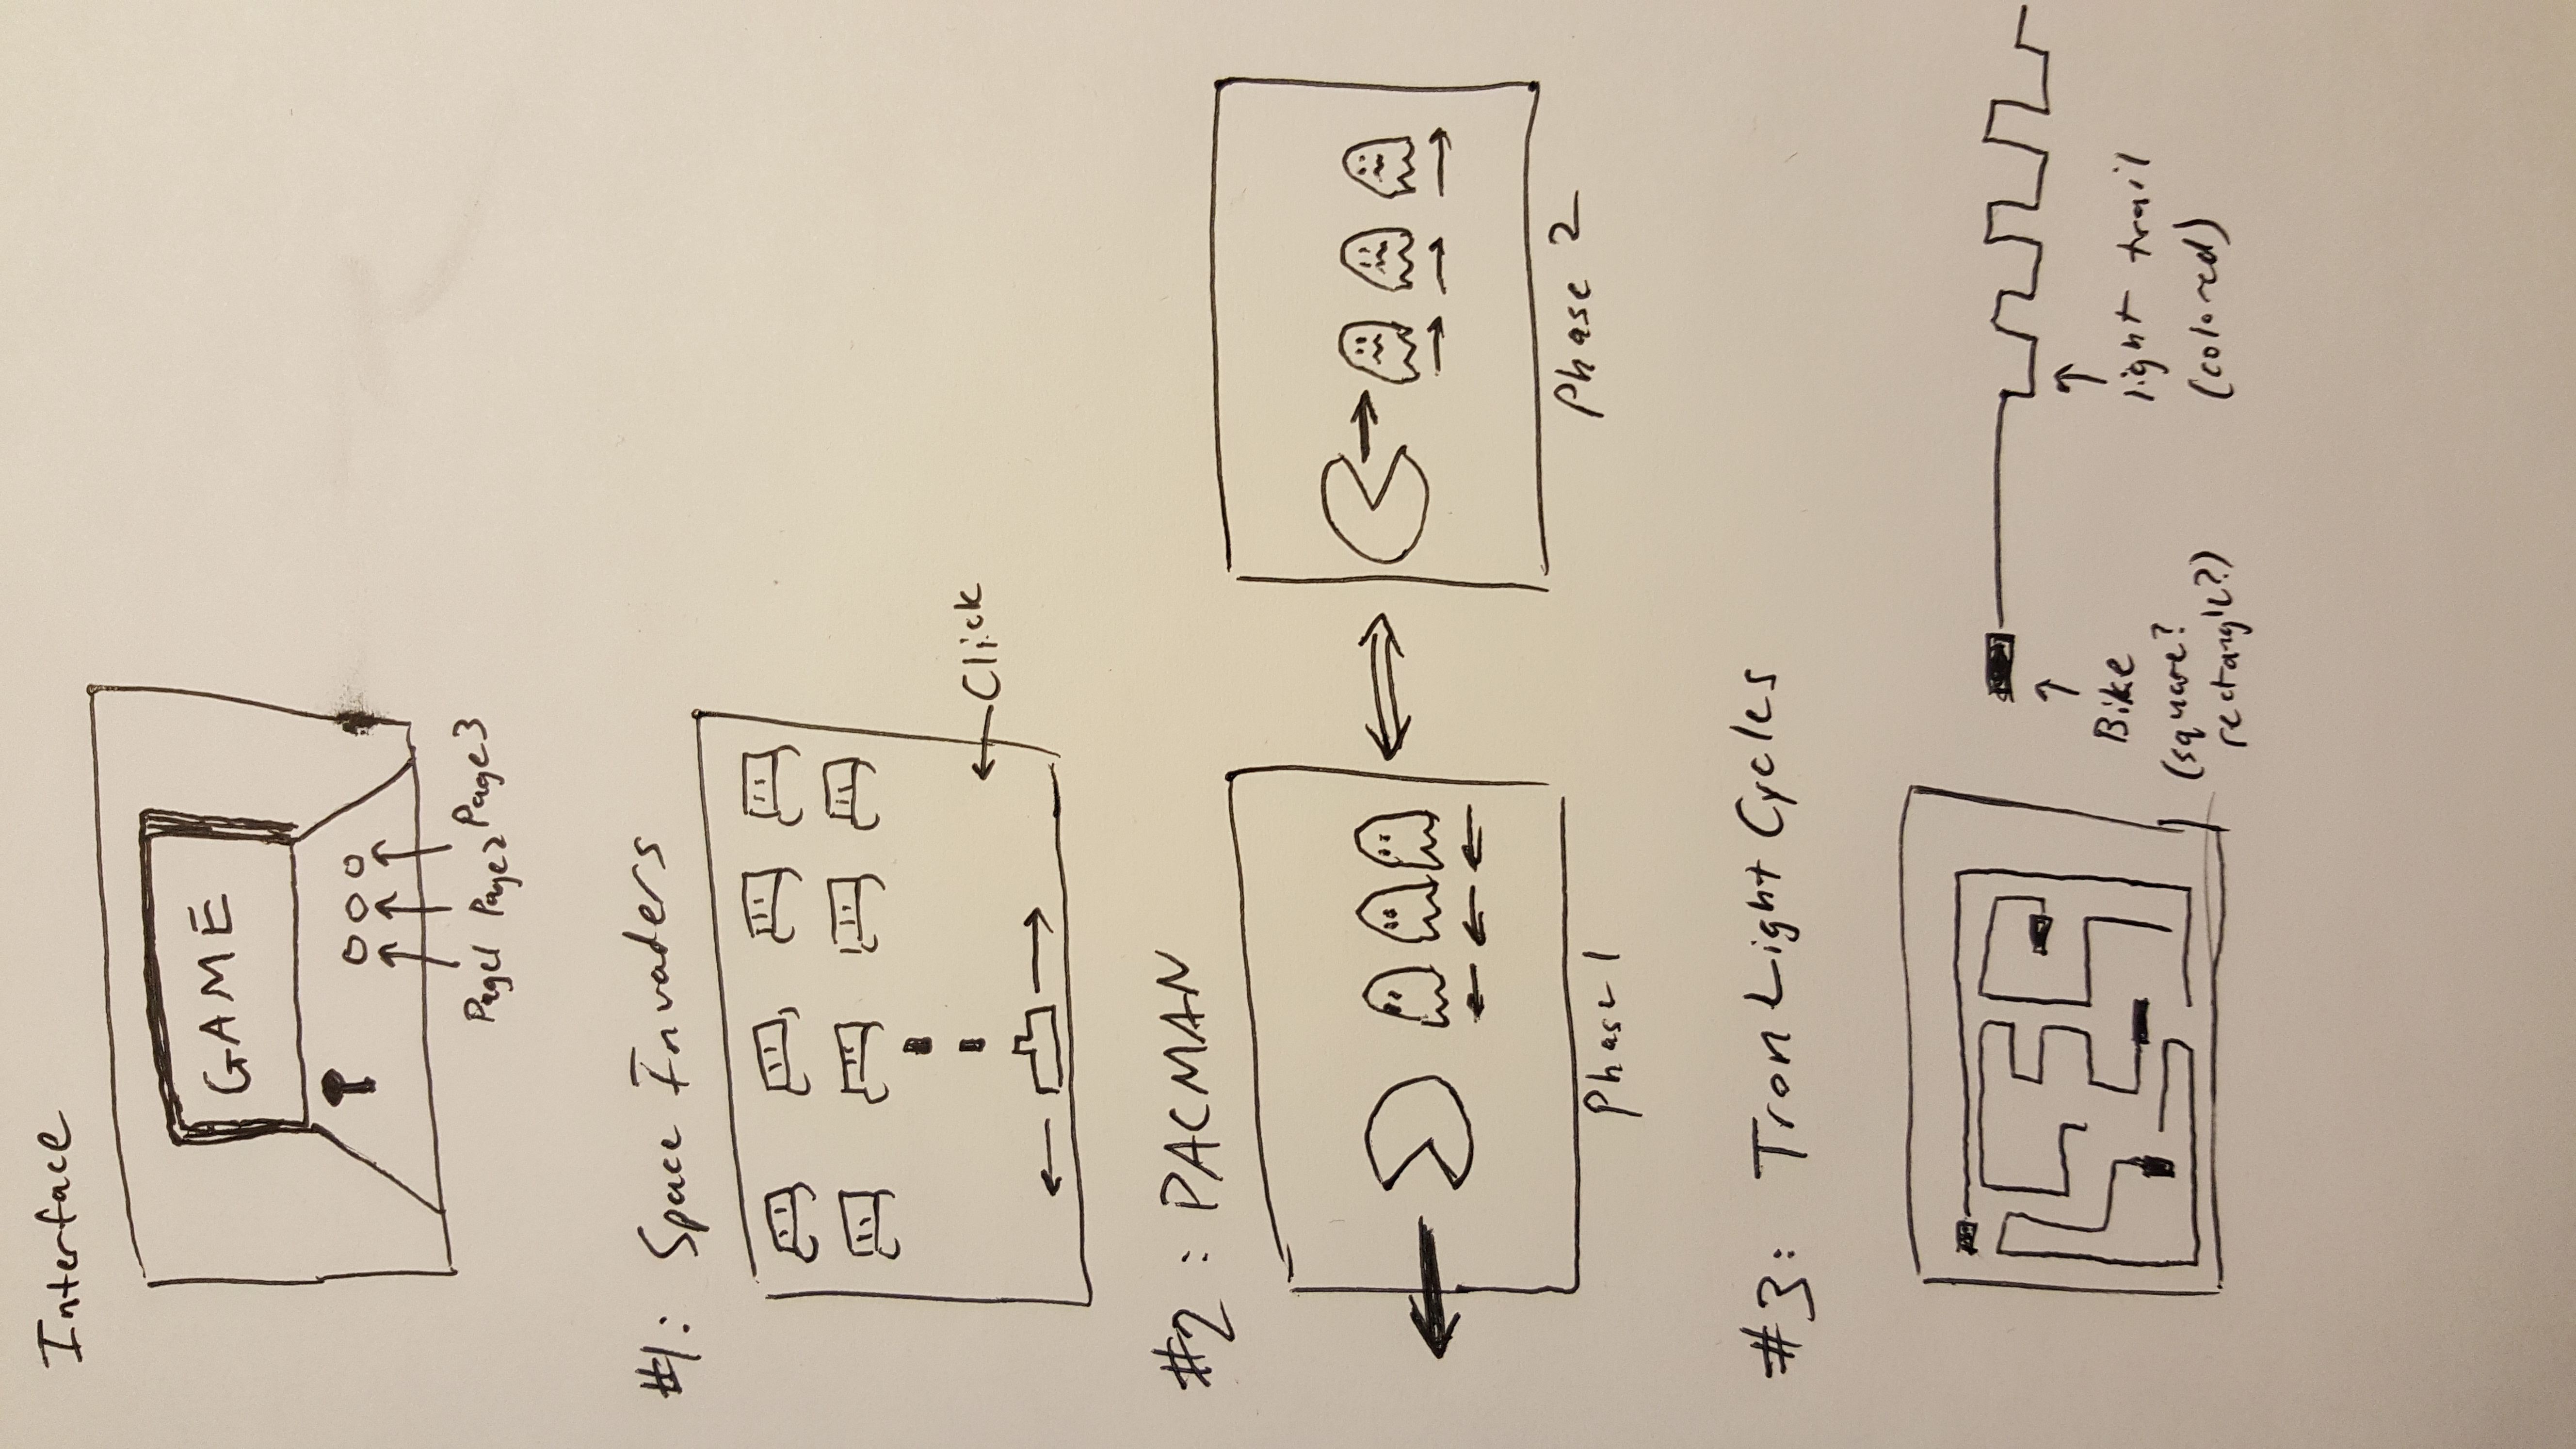 Interface
GAME
Page1 Page2 Page3
#1: Space Invaders
Click
#2: PACMAN
Phase 1
Phase 2
#3: Tron Light Cycles
Bike
(square?
rectangle?)
light trail
(colored)